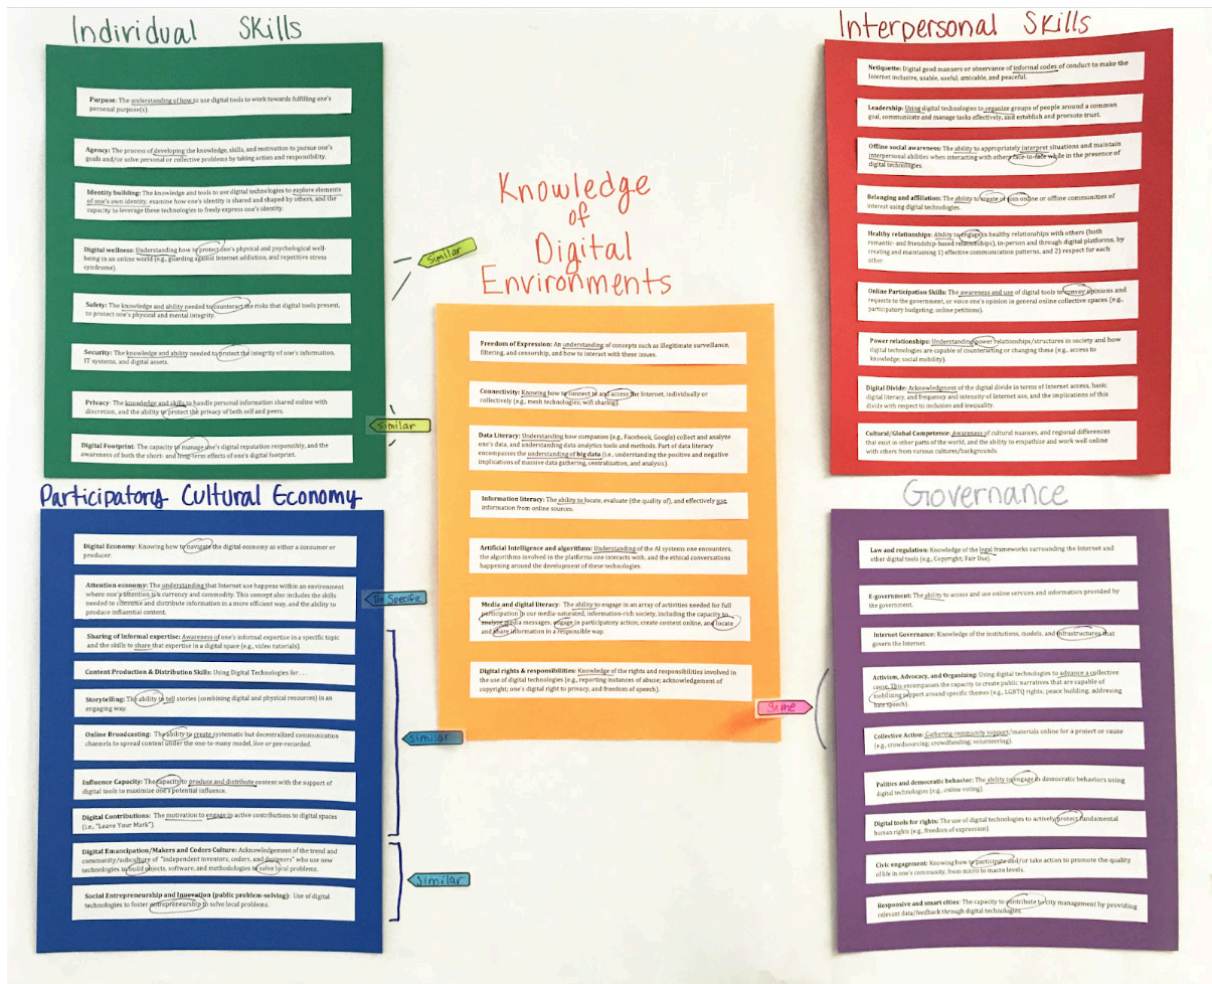 Individual Skills
Purpose: The understanding of how to use digital tools to work towards fulfilling one's
personal purpose(s).
Agency: The process of developing the knowledge, skills, and motivation to pursue one's
goals and/or solve personal or collective problems by taking action and responsibility.
Identity building: The knowledge and tools to use digital technologies to explore elements
of one's own identity, examine how one's identity is shared and shaped by others, and the
capacity to leverage these technologies to freely express one's identity.
Digital wellness: Understanding how to protect one's physical and psychological well-
being in an online world (e.g., guarding against Internet addiction, and repetitive stress
syndrome).
Safety: The knowledge and ability needed to counteract the risks that digital tools present,
to protect one's physical and mental integrity.
Security: The knowledge and ability needed to protect the integrity of one's information,
IT systems, and digital assets.
Privacy: The knowledge and skills to handle personal information shared online with
discretion, and the ability to protect the privacy of both self and peers.
Digital Footprint: The capacity to manage one's digital reputation responsibly, and the
awareness of both the short- and long-term effects of one's digital footprint.
Similar
Similar
Participatory Cultural Economy
Digital Economy: Knowing how to navigate the digital economy as either a consumer or
producer.
Attention economy: The understanding that Internet use happens within an environment
where one's attention is a currency and commodity. This concept also includes the skills
needed to and distribute information in a more efficient way, and the ability to
produce influential content.
Sharing of Informal expertise: Awareness of one's informal expertise in a specific topic
and the skills to share that expertise in a digital space (e.g., video tutorials).
Content Production & Distribution Skills: Using Digital Technologies for . . .
Storytelling: The ability to tell stories (combining digital and physical resources) in an
engaging way.
Online Broadcasting: The ability to create systematic but decentralised communication
channels to spread content under the one-to-many model, live or pre-recorded.
Influence Capacity: The capacity to produce and distribute content with the support of
digital tools to maximize one's potential influence.
Digital Contributions: The motivation to engage in active contributions to digital spaces
(i.e., "Leave Your Mark")
Digital Emancipation/Makers and Coders Culture: Acknowledgement of the trend and
community/subculture of "independent inventors, coders, and designers" who use new
technologies to build objects, software, and methodologies to solve local problems.
Social Entrepreneurship and Innovation (public problem-solving): Use of digital
technologies to foster entrepreneurship to solve local problems.
Too Specific
Similar
Similar
Knowledge
of
Digital
Environments
Freedom of Expression: An understanding of concepts such as illegitimate surveillance,
filtering, and censorship, and how to interact with these issues.
Connectivity: Knowing how to connect to and access the Internet, individually or
collectively (e.g., mesh technologies; wifi sharing).
Data Literacy: Understanding how companies (e.g., Facebook, Google) collect and analyze
one's data, and understanding data analytics tools and methods. Part of data literacy
encompasses the understanding of big data (i.e., understanding the positive and negative
implications of massive data gathering, centralization, and analysis).
Information literacy: The ability to locate, evaluate (the quality of), and effectively use
information from online sources.
Artificial Intelligence and algorithms: Understanding of the AI systems one encounters,
the algorithms involved in the platforms one interacts with, and the ethical conversations
happening around the development of these technologies.
Media and digital literacy: The ability to engage in an array of activities needed for full
participation in our media-saturated, information-rich society, including the capacity to
analyze media messages, engage in participatory action; create content online, and locate
and share information in a responsible way.
Digital rights & responsibilities: Knowledge of the rights and responsibilities involved in
the use of digital technologies (e.g., reporting instances of abuse; acknowledgement of
copyright; one's digital right to privacy, and freedom of speech).
Interpersonal Skills
Netiquette: Digital good manners or observance of informal codes of conduct to make the
Internet inclusive, usable, useful, amicable, and peaceful.
Leadership: Using digital technologies to organize groups of people around a common
goal, communicate and manage tasks effectively, and establish and promote trust.
Offline social awareness: The ability to appropriately interpret situations and maintain
interpersonal abilities when interacting with others face-to-face while in the presence of
digital technologies.
Belonging and affiliation: The ability to create or join online or offline communities of
interest using digital technologies.
Healthy relationships: Ability to engage in healthy relationships with others (both
romantic- and friendship-based relationships), in-person and through digital platforms, by
creating and maintaining 1) effective communication patterns, and 2) respect for each
other.
Online Participation Skills: The awareness and use of digital tools to convey opinions and
requests to the government, or voice one's opinion in general online collective spaces (e.g.,
participatory budgeting, online petitions).
Power relationships: Understanding power relationships/structures in society and how
digital technologies are capable of counteracting or changing these (e.g., access to
knowledge; social mobility).
Digital Divide: Acknowledgment of the digital divide in terms of Internet access, basic
digital literacy, and frequency and intensity of Internet use, and the implications of this
divide with respect to inclusion and inequality.
Cultural/Global Competence: Awareness of cultural nuances, and regional differences
that exist in other parts of the world, and the ability to empathize and work well online
with others from various cultures/backgrounds.
Governance
Law and regulation: Knowledge of the legal frameworks surrounding the Internet and
other digital tools (e.g., Copyright, Fair Use).
E-government: The ability to access and use online services and information provided by
the government.
Internet Governance: Knowledge of the institutions, models, and infrastructures that
govern the Internet.
Activism, Advocacy, and Organizing: Using digital technologies to advance a collective
cause. This encompasses the capacity to create public narratives that are capable of
mobilizing support around specific themes (e.g., LGBTQ rights; peace building; addressing
hate speech).
Collective Action: Gathering community support/materials online for a project or cause
(e.g., crowdsourcing; crowdfunding; volunteering).
Politics and democratic behavior: The ability to engage in democratic behaviors using
digital technologies (e.g., online voting).
Digital tools for rights: The use of digital technologies to actively protect fundamental
human rights (e.g., freedom of expression).
Civic engagement: Knowing how to participate and/or take action to promote the quality
of life in one's community, from micro to macro levels.
Responsive and smart cities: The capacity to contribute to city management by providing
relevant data/feedback through digital technologies.
Same